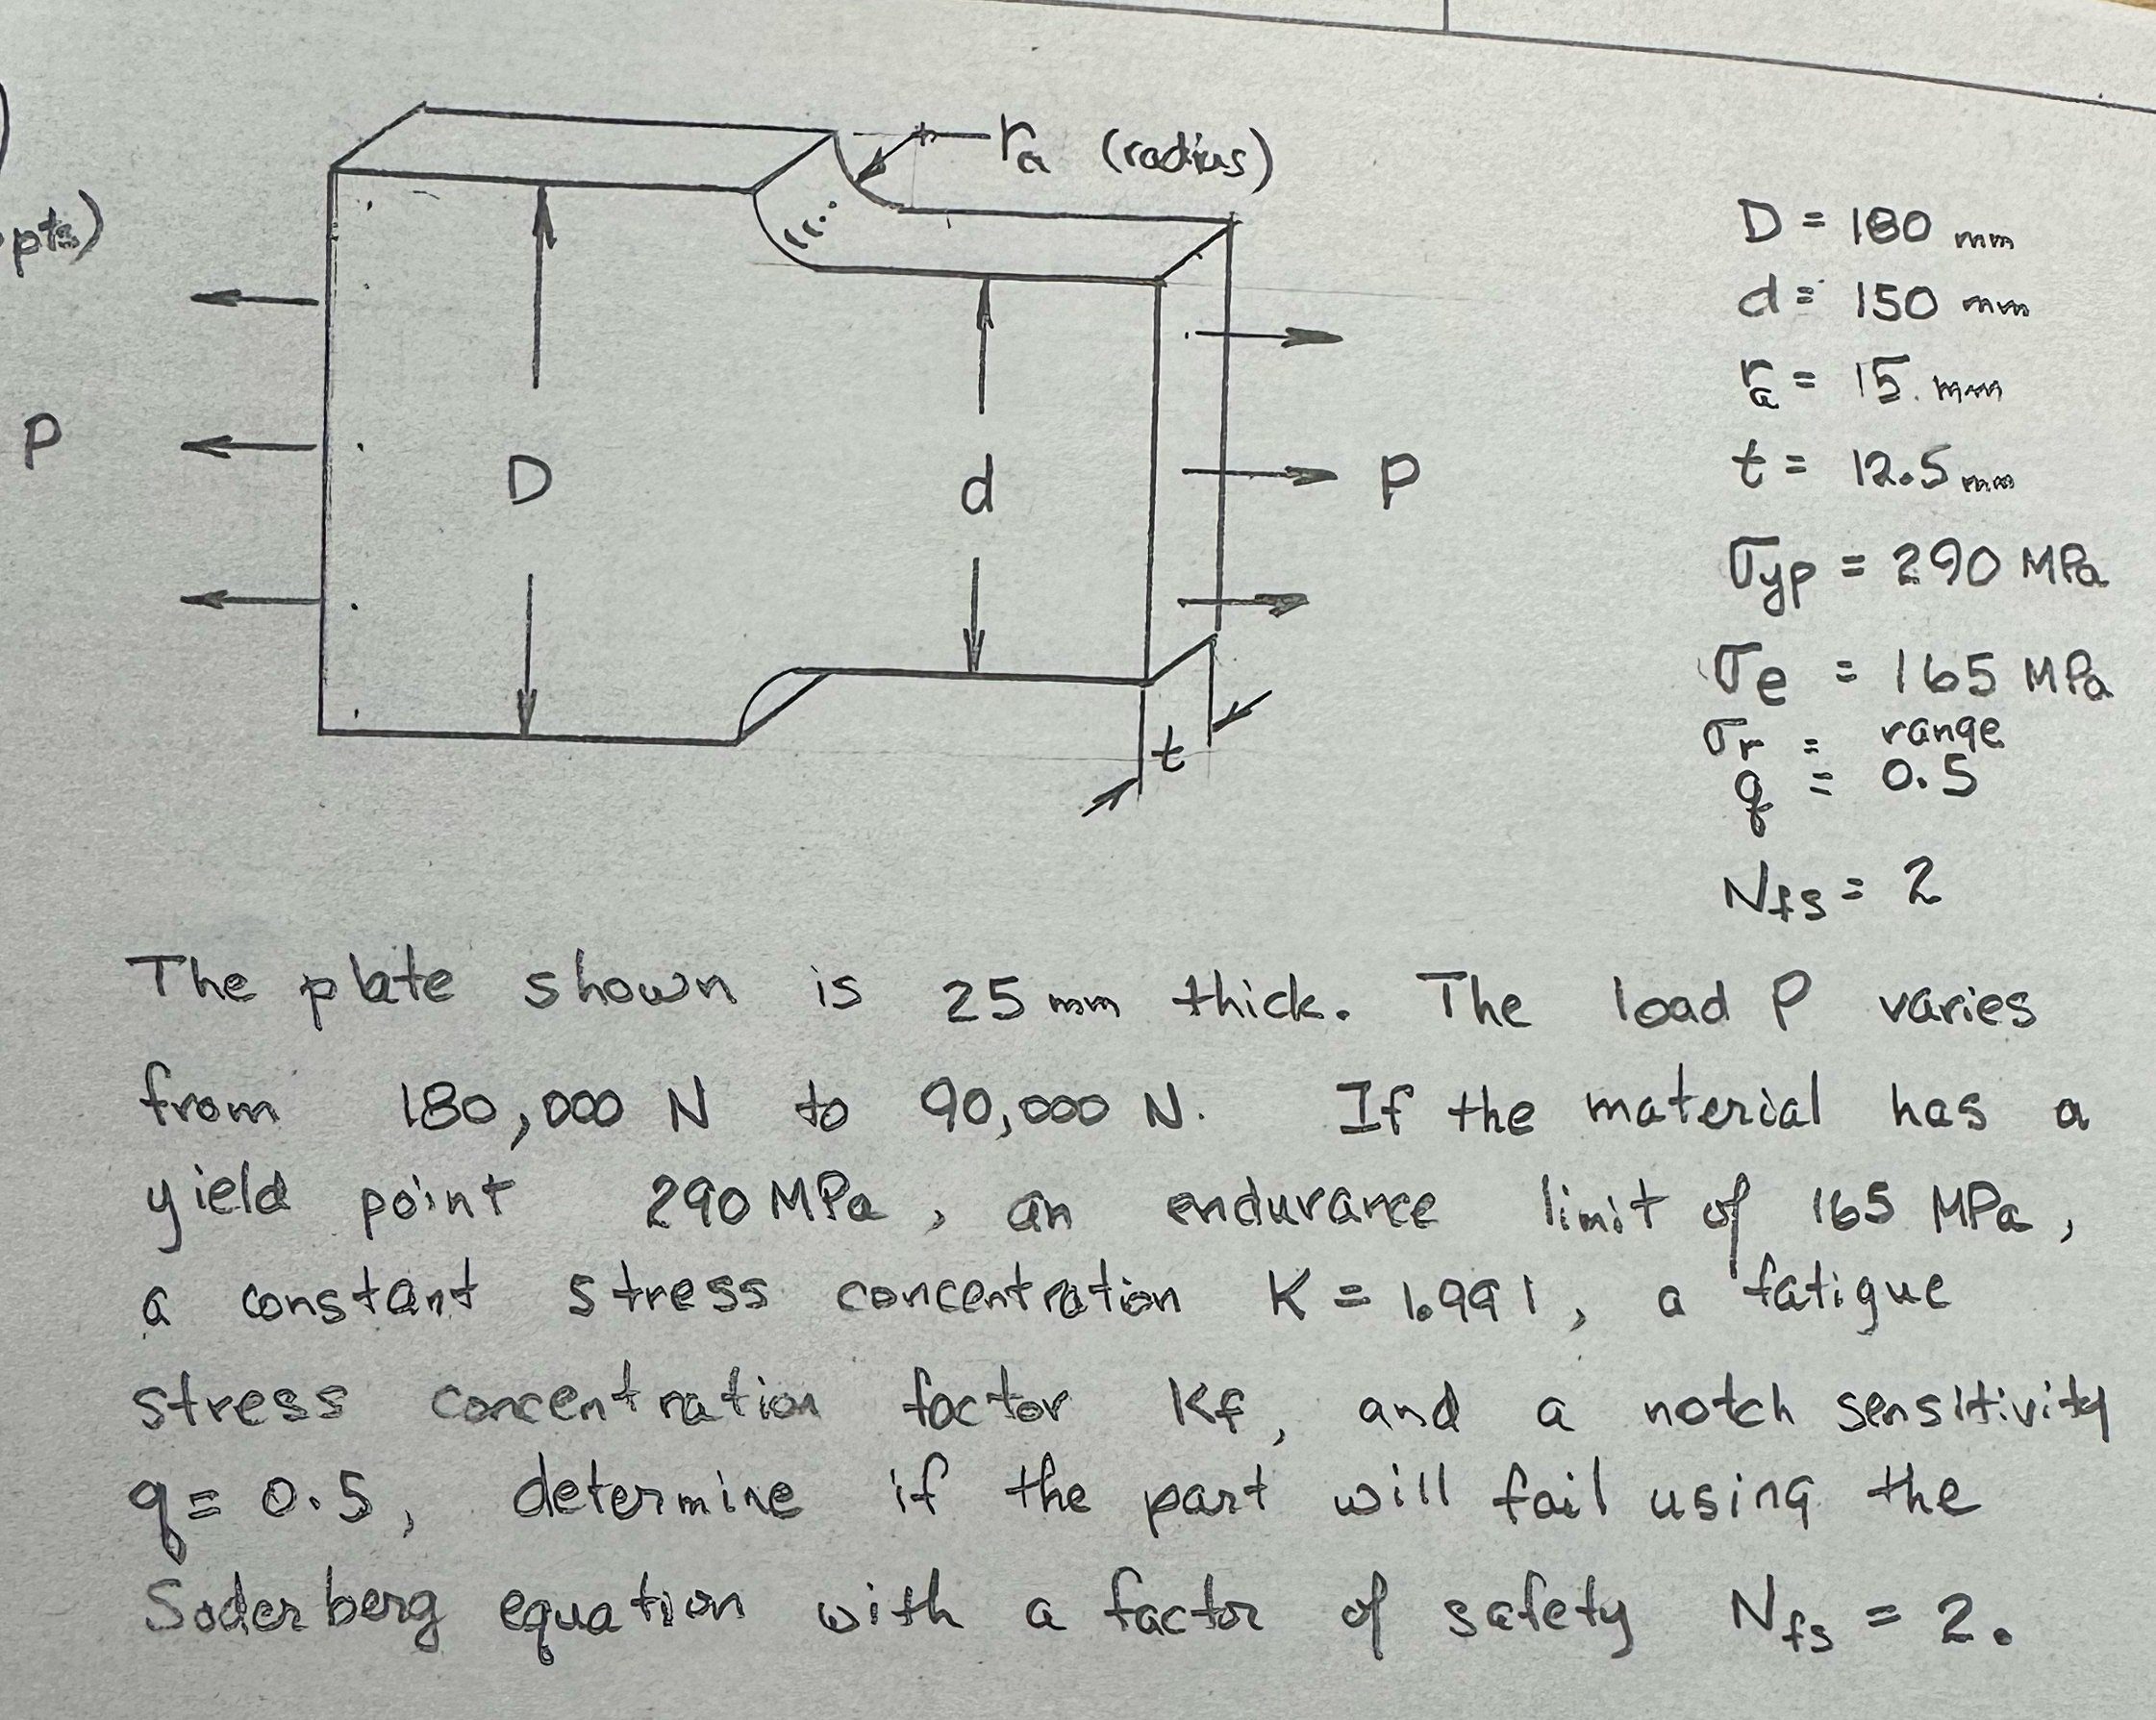 pts)
ra (radius)
P
D
d
P
t
D = 180 mm
d = 150 mm
ra = 15. mm
t = 12.5 mm
σyp = 290 MPa
σe = 165 MPa
σr = range
q = 0.5
Nfs = 2
The plate shown is 25 mm thick. The load P varies
from 180,000 N to 90,000 N. If the material has a
yield point 290 MPa, an endurance limit of 165 MPa,
a constant stress concentration K = 1.991, a fatigue
stress concentration factor Kf, and a notch sensitivity
q = 0.5, determine if the part will fail using the
Soderberg equation with a factor of safety Nfs = 2.